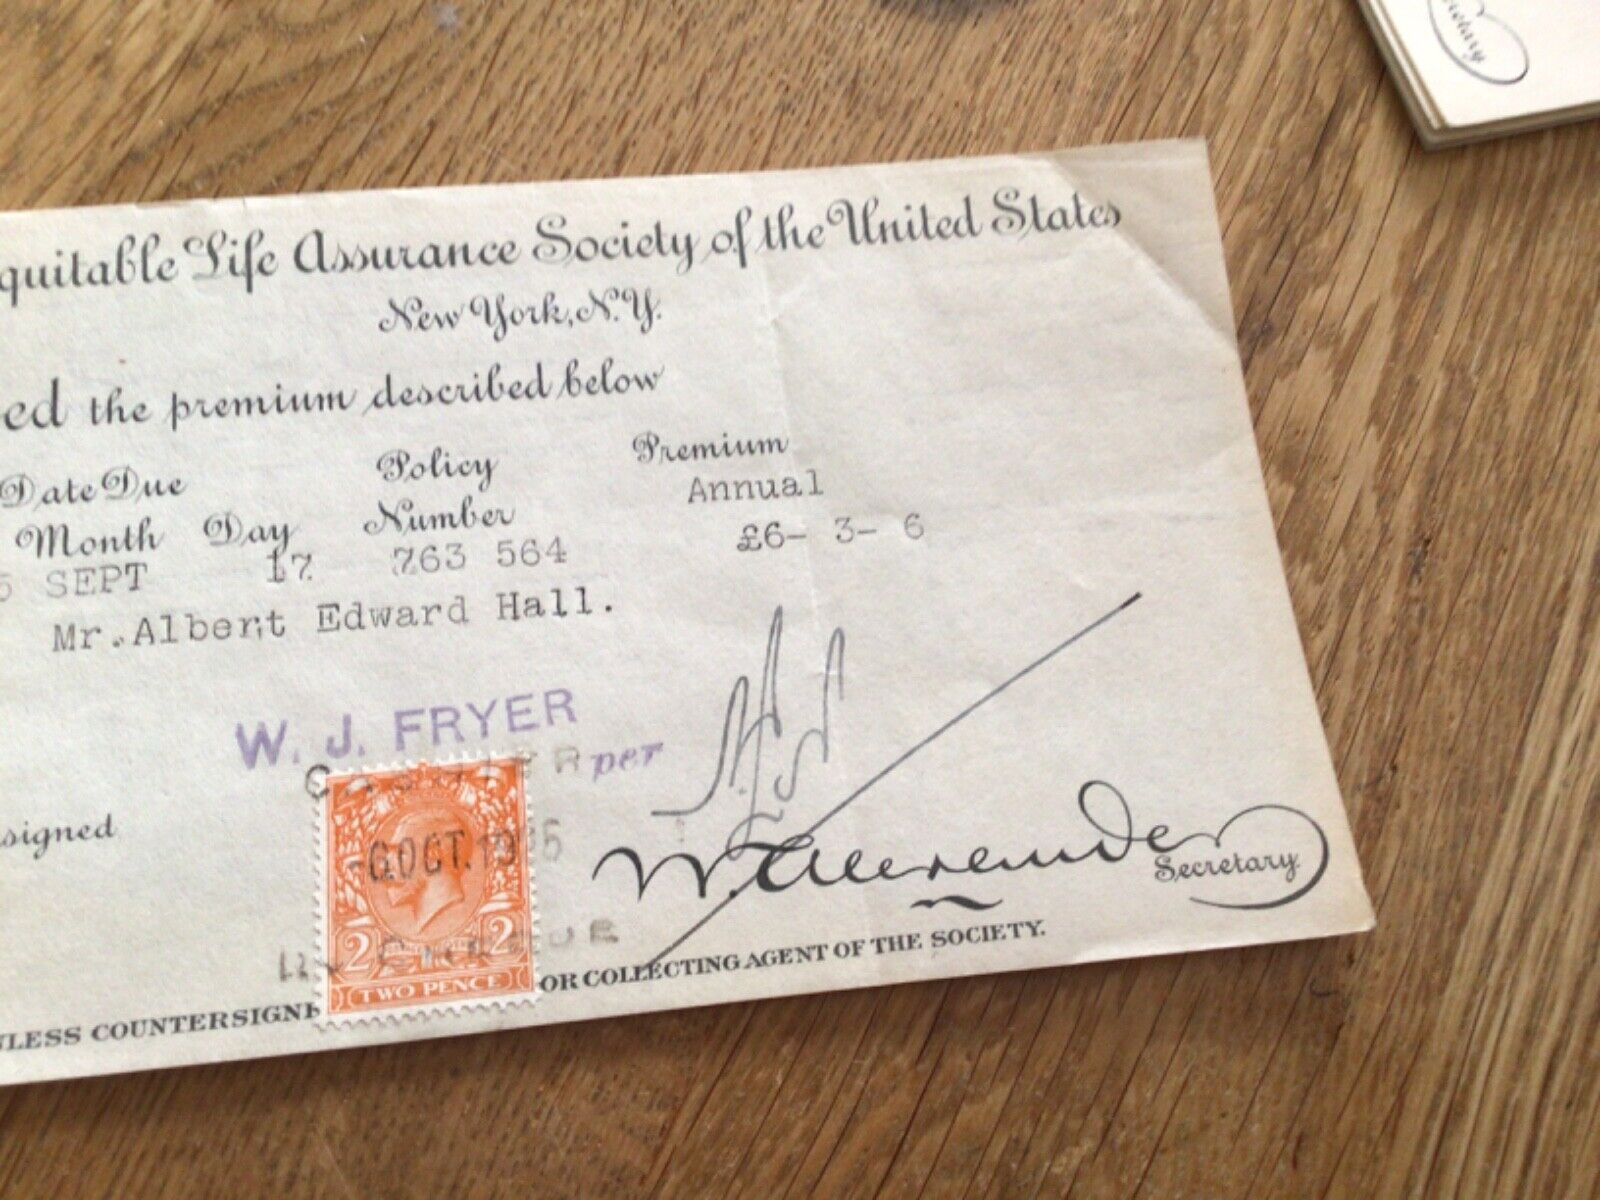 quitable Life Assurance Society of the United States
New York, N.Y.
ed the premium described below
Date Due Policy Premium
Month Day Number Annual
5 SEPT 17 763 564 £6- 3- 6
Mr. Albert Edward Hall.
W. J. FRYER
CASHIER per
signed
6 OCT. 1935
W. Alexander
Secretary
BY CHEQUE
2 2
TWO PENCE
NLESS COUNTERSIGNE OR COLLECTING AGENT OF THE SOCIETY.
cretary